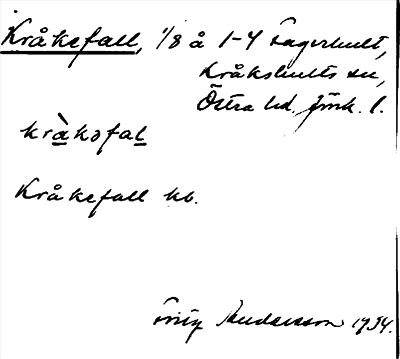 Kråkefall, 1/8 å 1-4 Lagerhult,
Kråkshults sn,
Östra hd. Jönk. l.
kràkəfal
Kråkefall kb.
Fritz Andersson 1934.